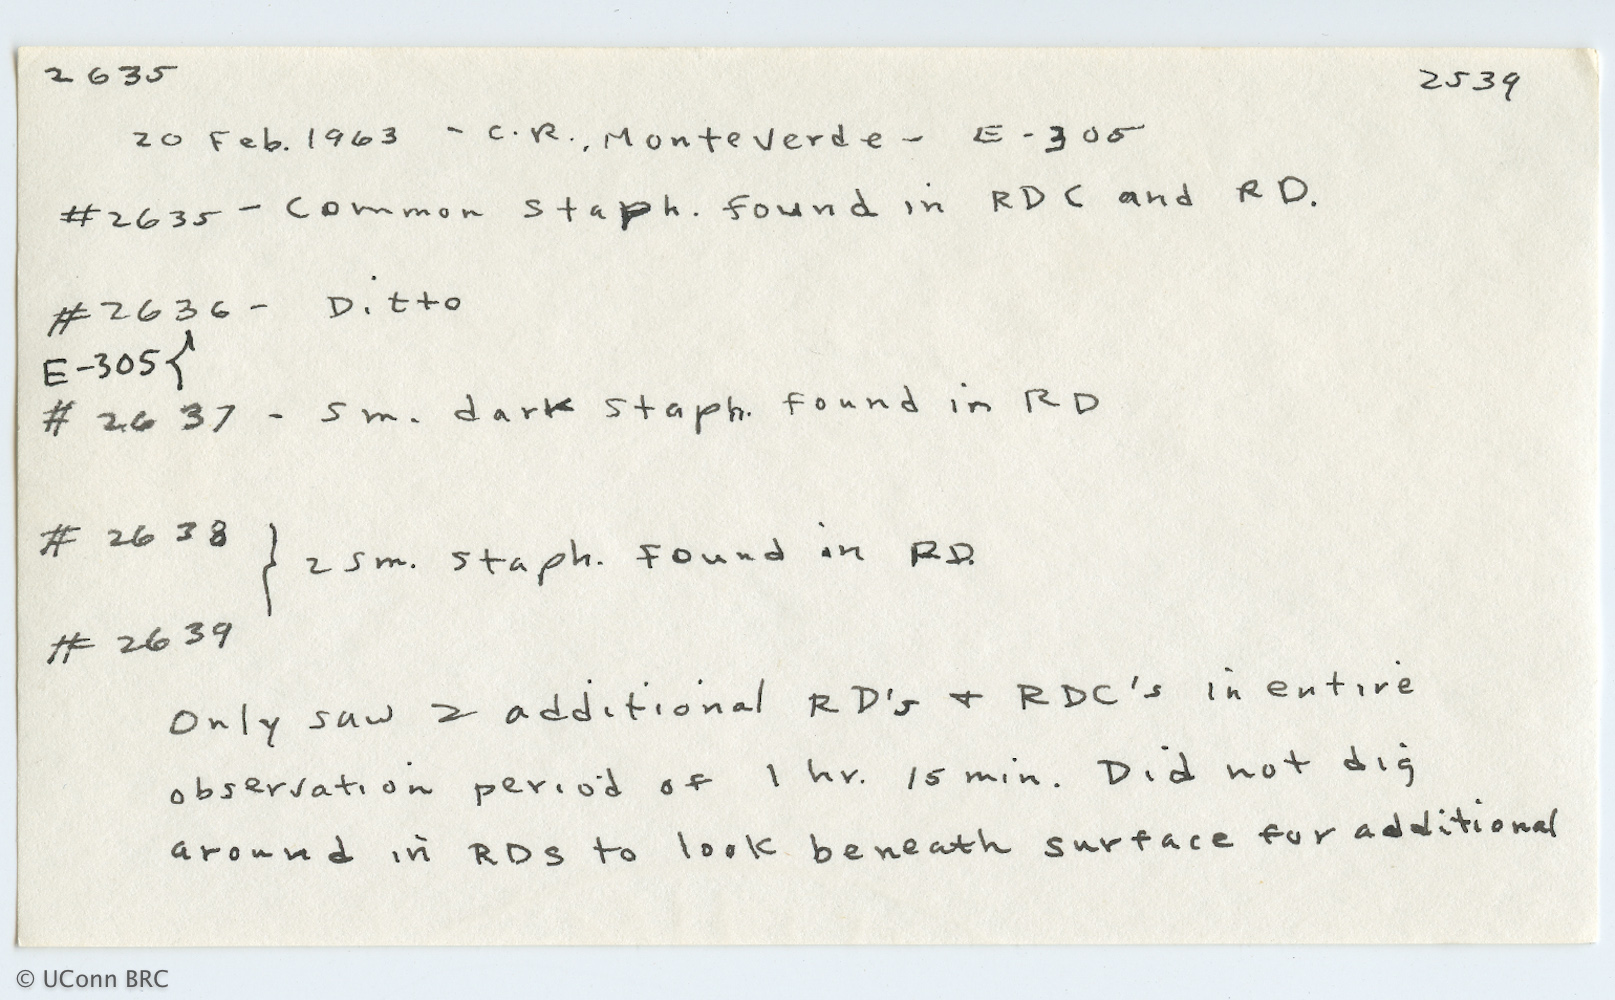 2635 2539
20 Feb. 1963 - C.R., Monteverde - E-305
#2635 - Common staph. found in RDC and RD.
#2636 - Ditto
E-305{
# 2637 - sm. dark staph. found in RD
# 2638 } 2 sm. staph. found in RD.
# 2639
Only saw 2 additional RD's + RDC's in entire
observation period of 1 hr. 15 min. Did not dig
around in RDs to look beneath surface for additional
© UConn BRC